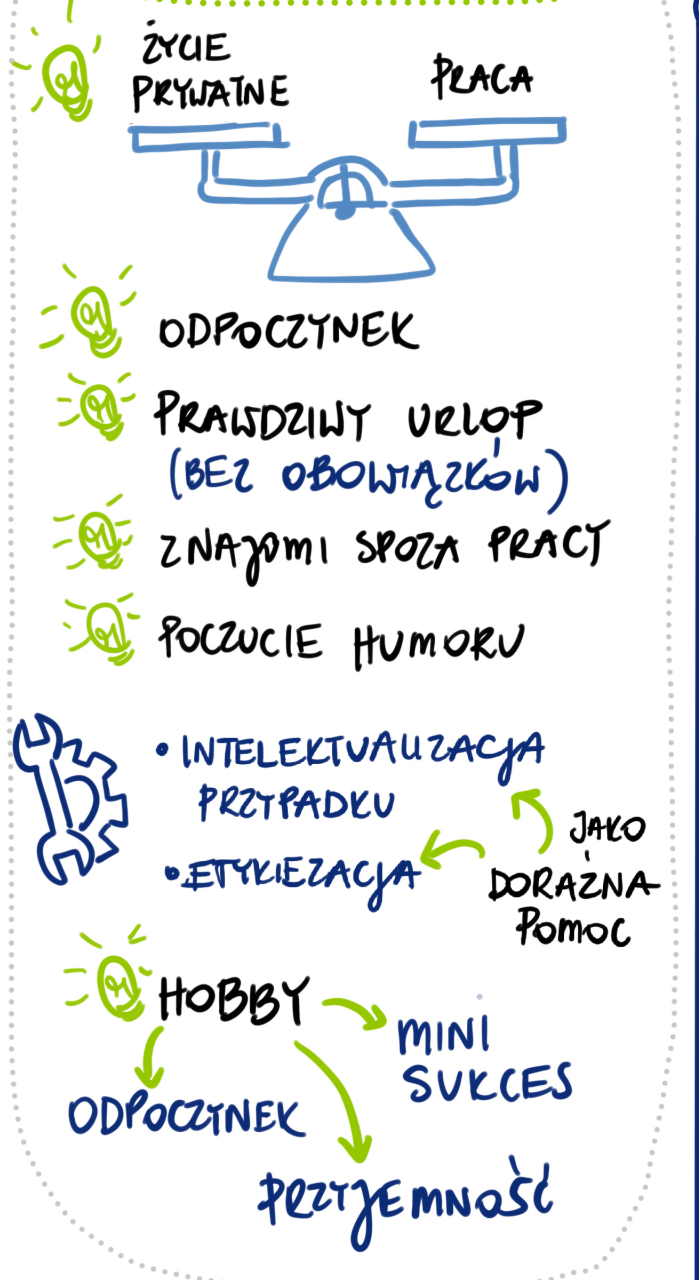 ŻYCIE
PRYWATNE
PRACA
ODPOCZYNEK
PRAWDZIWY URLOP
(BEZ OBOWIĄZKÓW)
ZNAJOMI SPOZA PRACY
POCZUCIE HUMORU
• INTELEKTUALIZACJA
PRZYPADKU
• ETYKIEZACJA
JAKO
DORAŹNA
POMOC
HOBBY
MINI
SUKCES
ODPOCZYNEK
PRZYJEMNOŚĆ